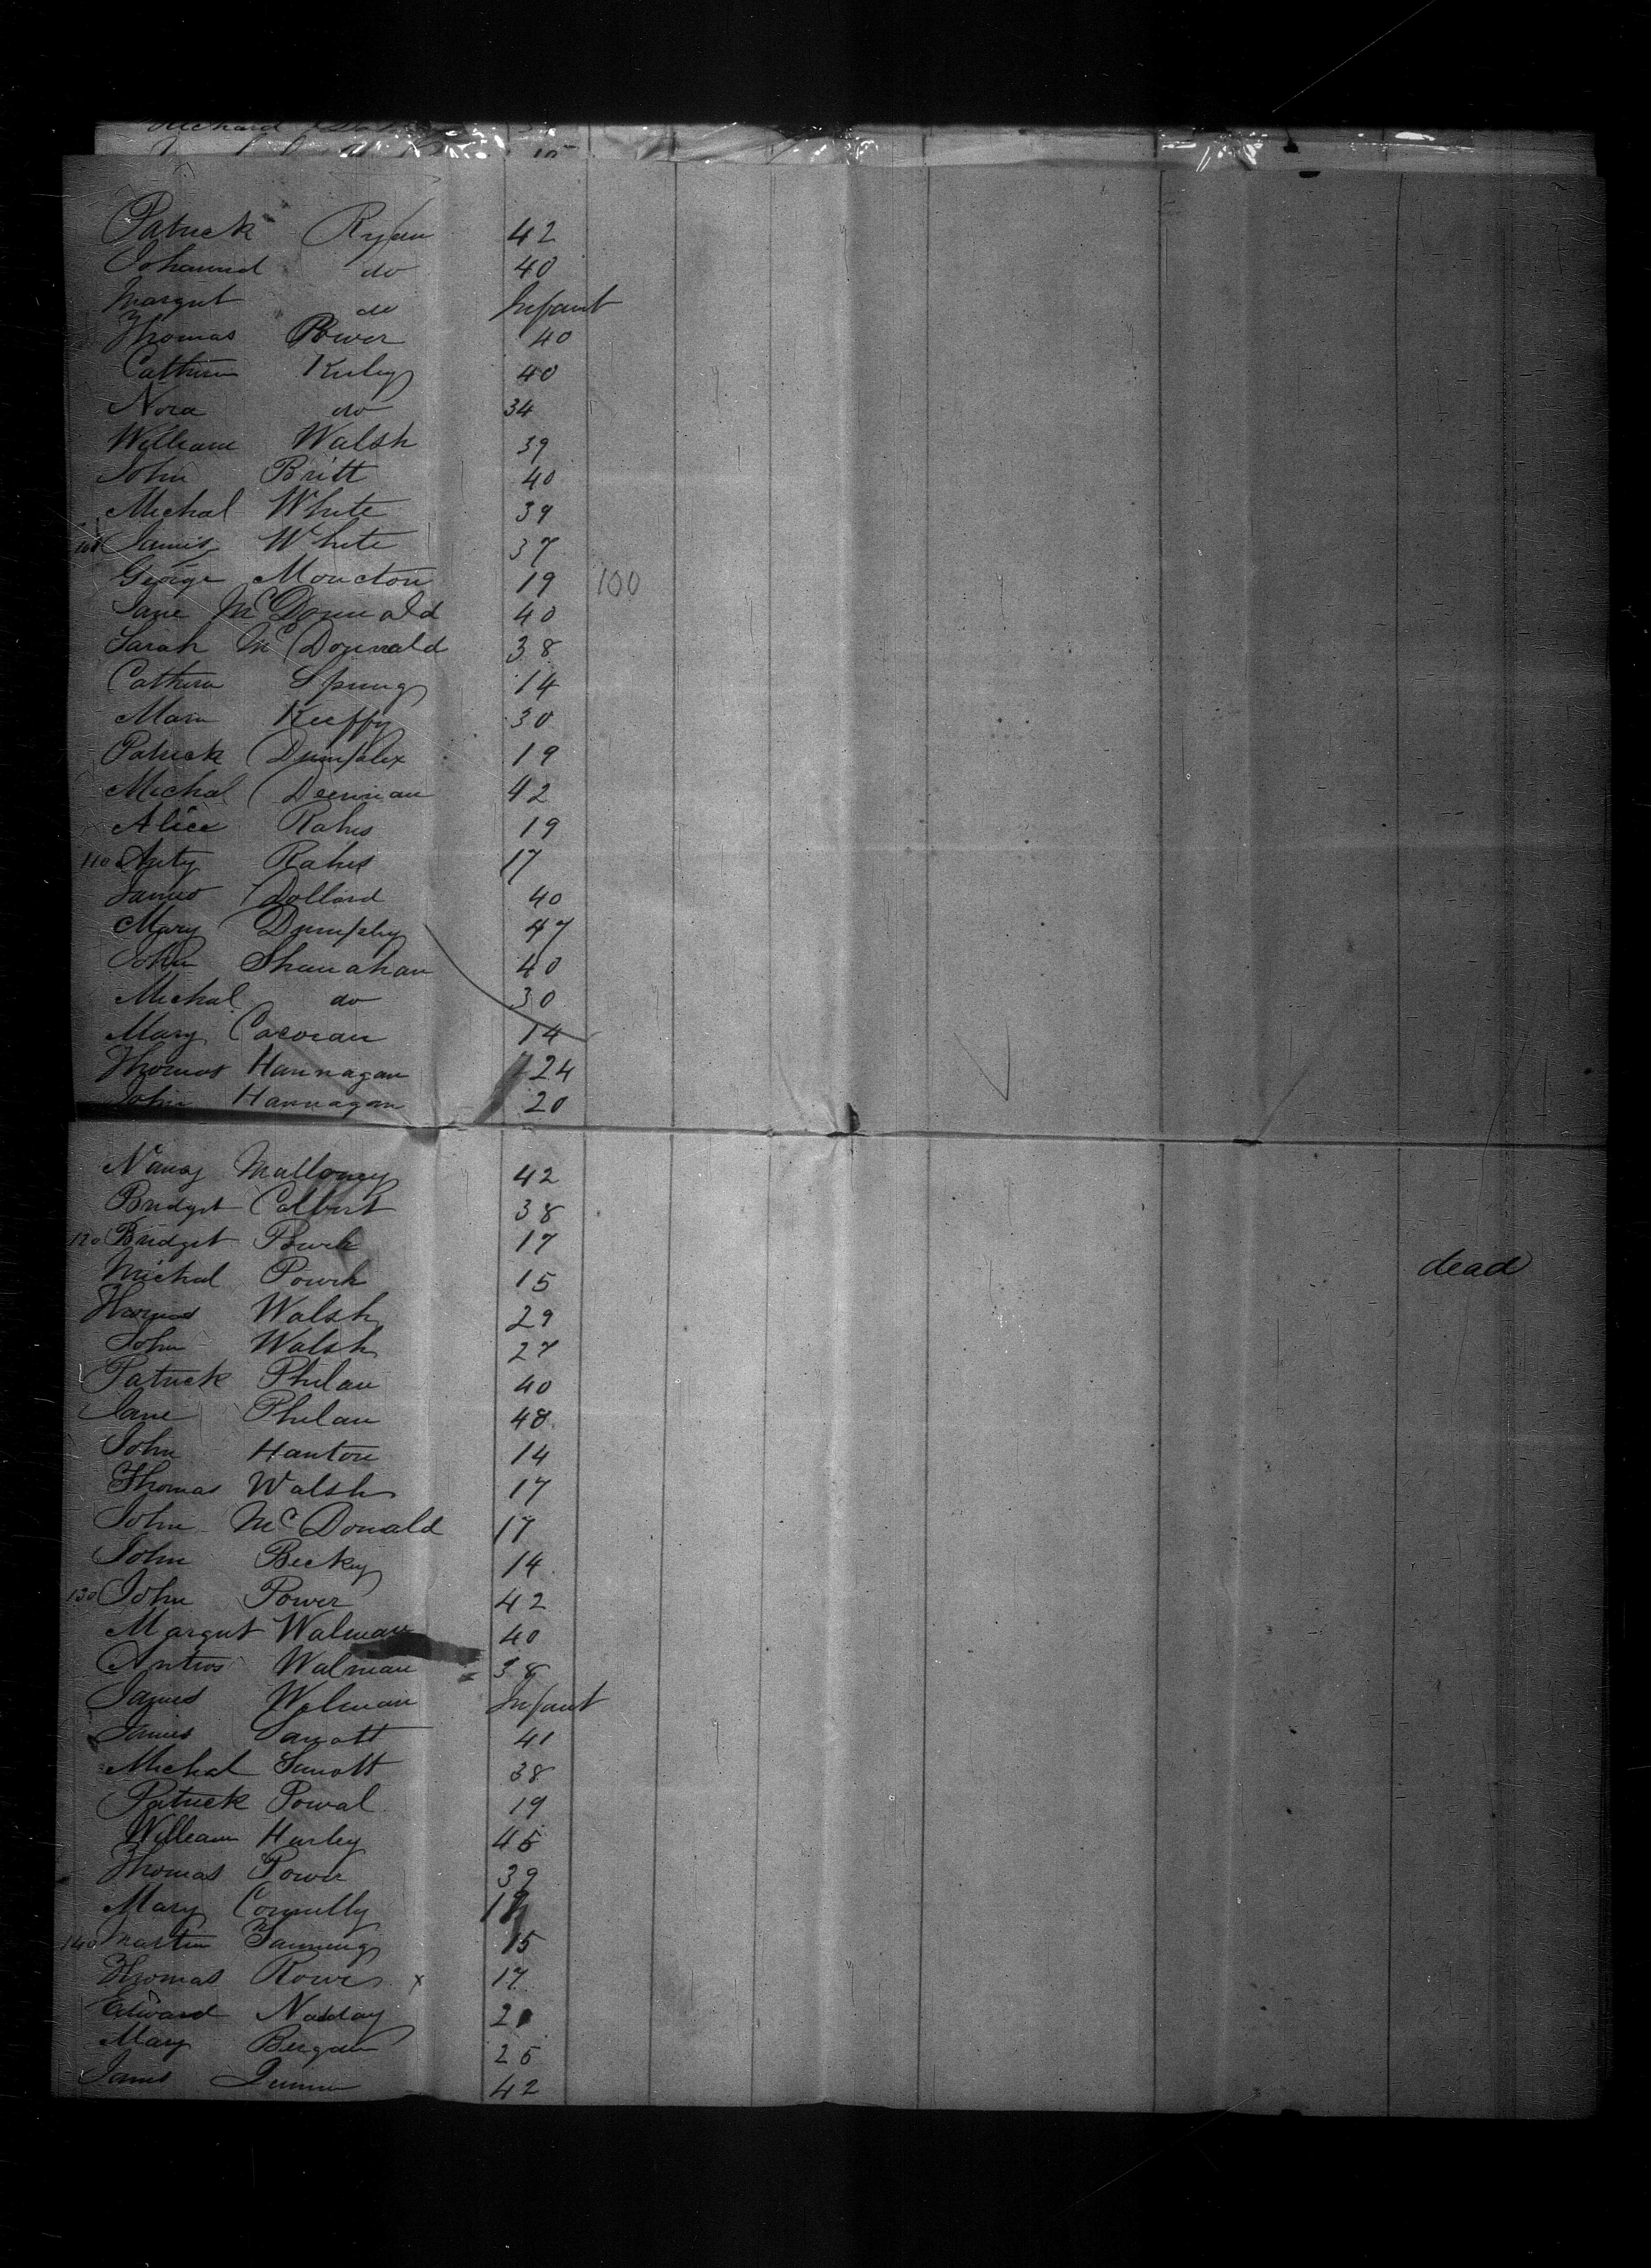 Richard
Patrick Ryan 42
Johanna do 40
Margret do Infant
Thomas Power 40
Cathrin Kirby 40
Nora do 34
William Walsh 39
John Britt 40
Michal White 39
James White 37
George Moucton 19 100
Jane McDonnald 40
Sarah McDonnald 38
Cathrin Spring 14
Mary Keeffy 30
Patrick 19
Michal 42
Alice Rahes 19
110 Anty Rahes 17
James Dollard 40
Mary Dumphy 47
John Shanahan 40
Michal do 30
Mary Cacoran 14
Thomas Hannagan 24
John Hannagan 20
Nancy Malloney 42
Bridget Colbert 38
120 Bridget Power 17
Michal Power 15 dead
Thomas Walsh 29
John Walsh 27
Patrick Philan 40
Jane Philan 48
John Hanton 14
Thomas Walsh 17
John McDonald 17
John Beckey 14
130 John Power 42
Margret Walman 40
Walman 38
James Walman Infant
James 41
Michal Sinott 38
Patrick Powal 19
William Hurley 45
Thomas Power 39
Mary Connelly
140 Martin Fanning 15
Thomas Rowe x 17
Edward Nadday
Mary Bergan 25
James 42